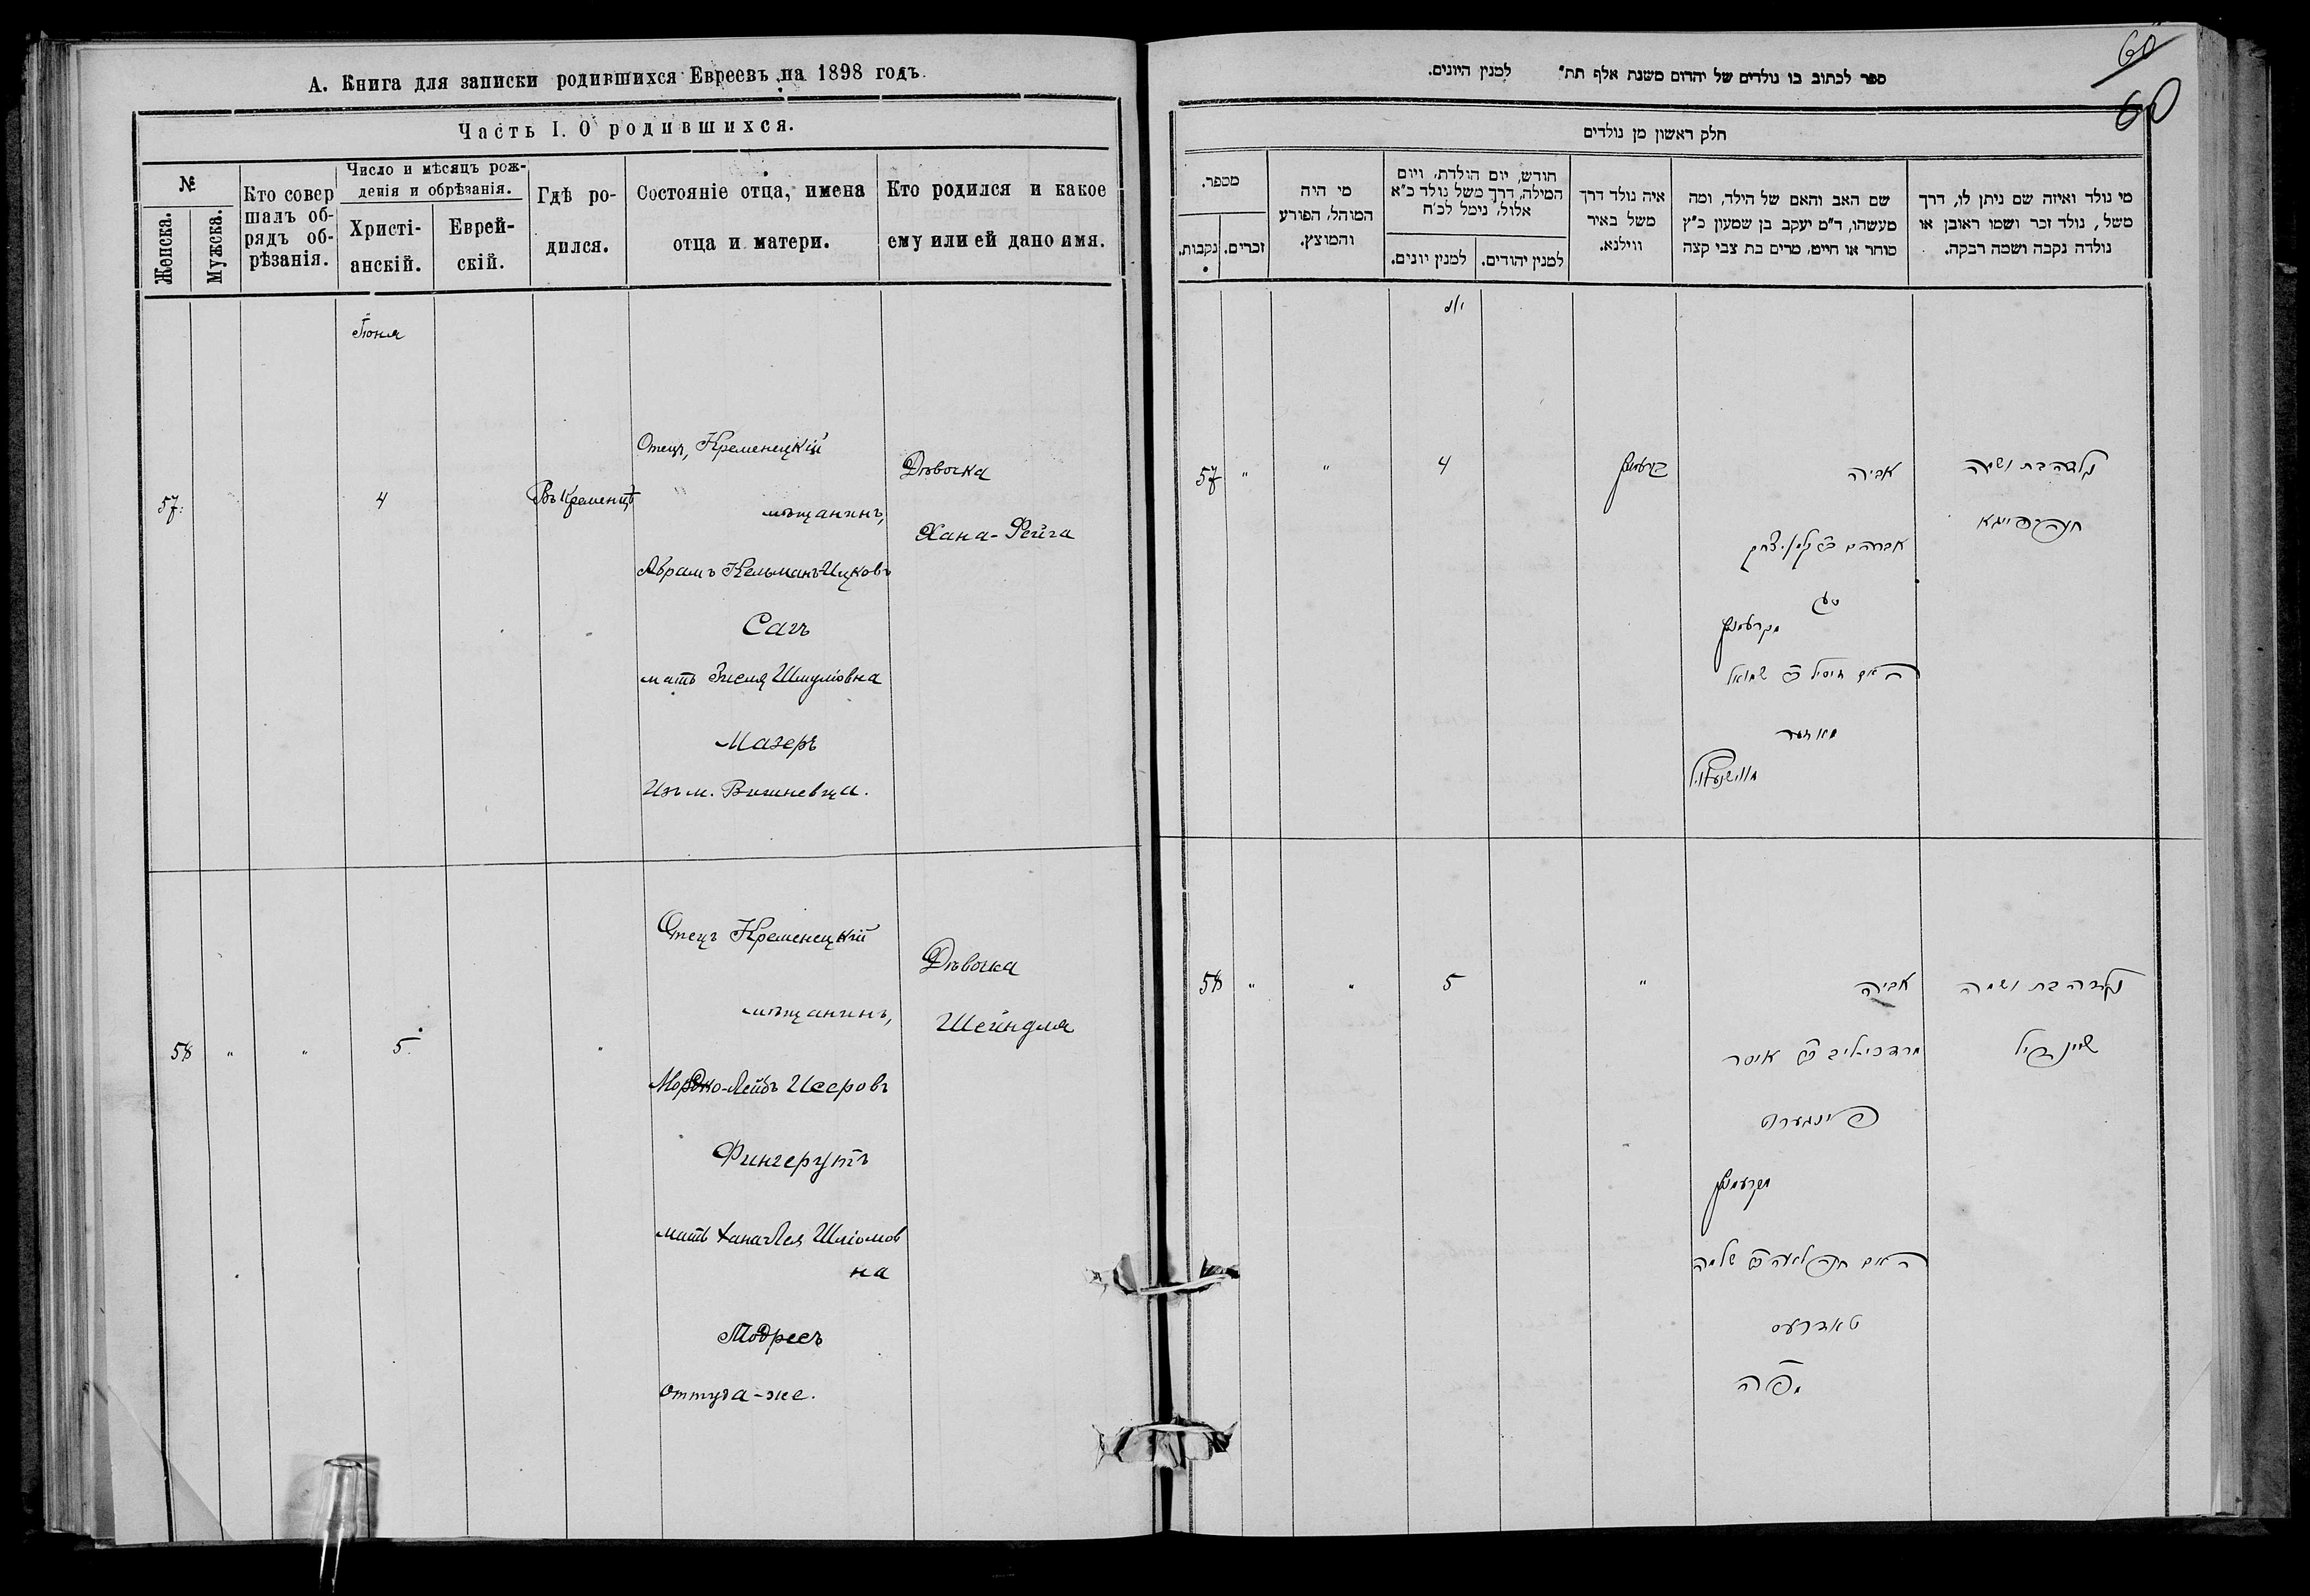 А. Книга для записки родившихся Евреевъ на 1898 годъ.
Часть I. О родившихся.
№
Женска.
Мужска.
Кто совер
шалъ об-
рядъ об-
рѣзанія.
Число и мѣсяцъ рож-
денія и обрѣзанія.
Христі-
анскій.
Еврей-
скій.
Гдѣ ро-
дился.
Состояніе отца, имена
отца и матери.
Кто родился и какое
ему или ей дано имя.
Іюня
57.
4
Въ Кременцѣ
Отецъ, Кременецкій
мѣщанинъ,
Абрамъ Кельманъ Ицковъ
Сагъ
мать Зиселя Шмулiовна
Мазеръ
Изъ м. Вишневца.
Дѣвочка
Хана-Фейга
58 " "
5.
"
Отецъ Кременецкій
мѣщанинъ,
Мордко-Лейбъ Исеровъ
Фингерутъ
мать Хана Лея Шліомов
на
Тодресъ
оттуда-же.
Дѣвочка
Шейндля
60
60
ספר לכתוב בו נולדים של יהדום משנת אלף תת" למנין היונים.
חלק ראשון מן נולדים
מספר.
נקבות.
זכרים.
מי היה
המוהל, הפורע
והמוצץ.
חודש, יום הולדת, ויום
המילה, דרך משל נולד כ"א
אלול, נימל לכ"ח
למנין יונים.
למנין יהודים.
איה נולד דרך
משל באיר
ווילנא.
שם האב והאם של הילד, ומה
מעשהו, ד"מ יעקב בן שמעון כ"ץ
סוחר או חייט, מרים בת צבי קצה
מי נולד ואיזה שם ניתן לו, דרך
משל, נולד זכר ושמו ראובן או
נולדה נקבה ושמה רבקה.
57 " "
4
אביה
מקרעמניץ
האם זיסיל בת שמואל
מאזער
נולדה בת ושמה
חנה פייגא
58 " "
5
"
אביה
מרדכי ליב בן איסר
פינגערוט
מקרעמניץ
האם חנה לאה בת שלמה
טאדרעס
מפה
נולדה בת ושמה
שיינדיל